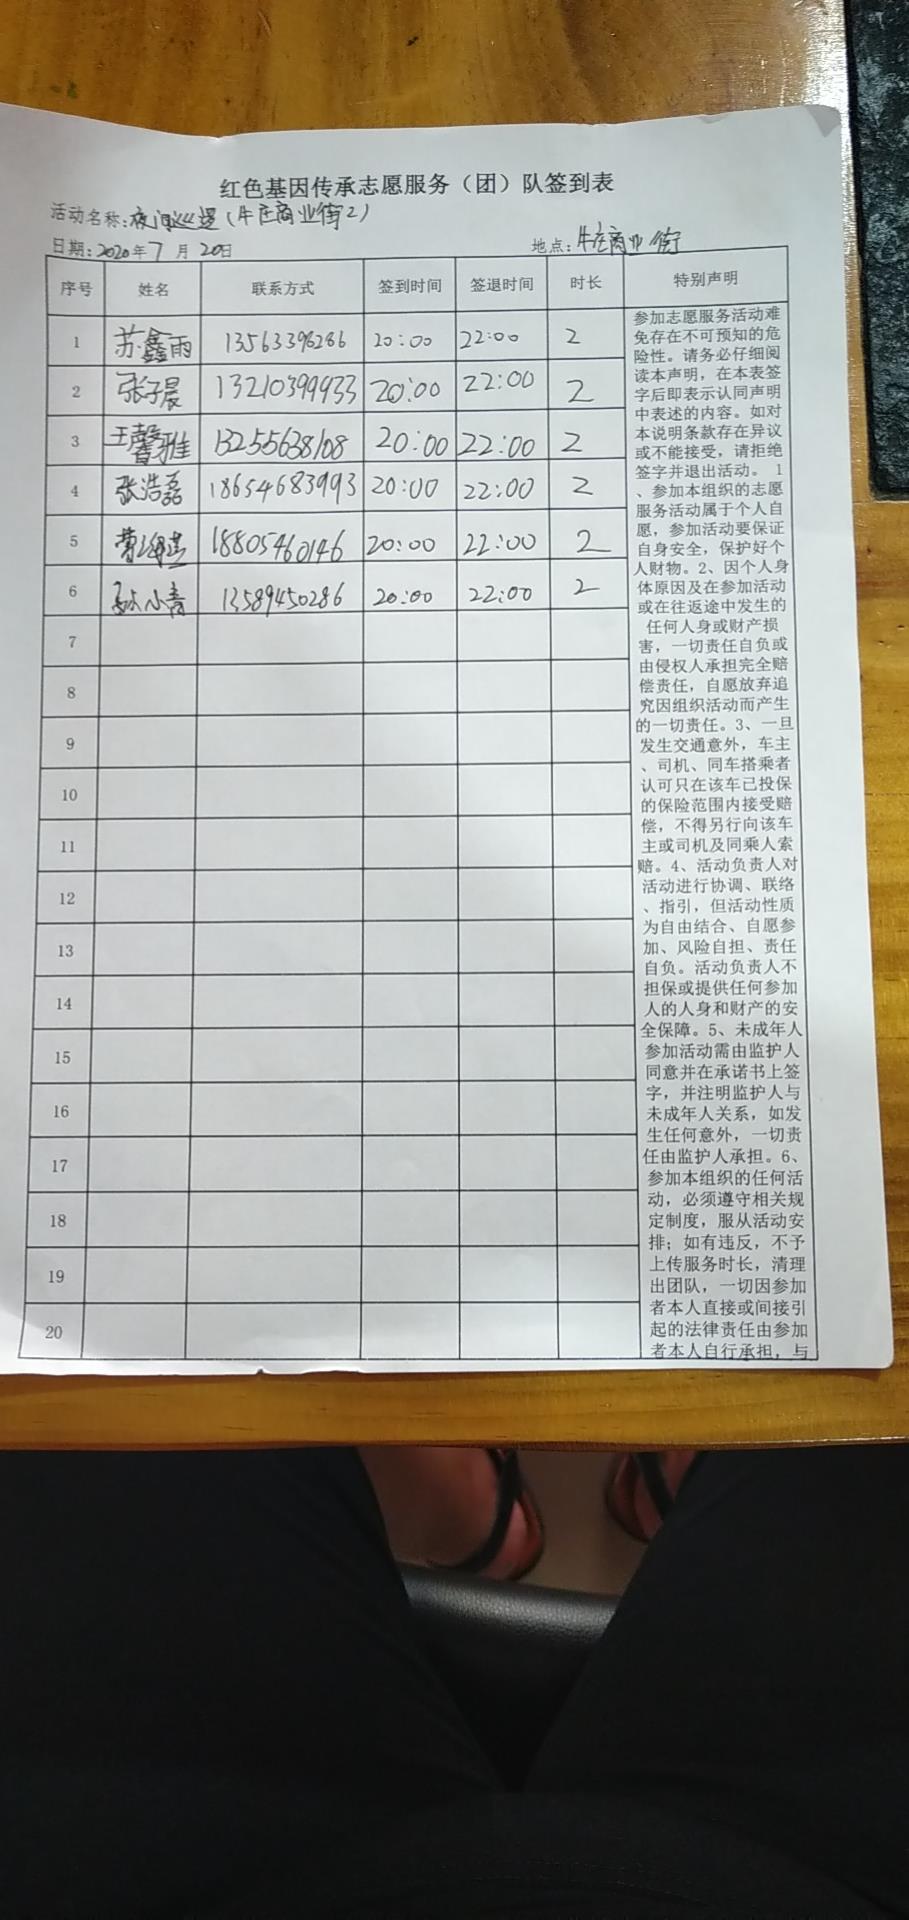 红色基因传承志愿服务（团）队签到表
活动名称：夜间巡逻（牛庄商业街2）
日期：2020年7月20日 地点：牛庄商业街
序号 姓名 联系方式 签到时间 签退时间 时长 特别声明
1 苏鑫雨 13563396286 20:00 22:00 2
2 张子晨 13210399433 20:00 22:00 2
3 王馨雅 13255638108 20:00 22:00 2
4 张浩磊 18654683993 20:00 22:00 2
5 曹 18805460146 20:00 22:00 2
6 孙小青 13589450286 20:00 22:00 2
7
8
9
10
11
12
13
14
15
16
17
18
19
20
参加志愿服务活动难
免存在不可预知的危
险性。请务必仔细阅
读本声明，在本表签
字后即表示认同声明
中表述的内容。如对
本说明条款存在异议
或不能接受，请拒绝
签字并退出活动。 1
、参加本组织的志愿
服务活动属于个人自
愿，参加活动要保证
自身安全，保护好个
人财物。2、因个人身
体原因及在参加活动
或在往返途中发生的
任何人身或财产损
害，一切责任自负或
由侵权人承担完全赔
偿责任，自愿放弃追
究因组织活动而产生
的一切责任。3、一旦
发生交通意外，车主
、司机、同车搭乘者
认可只在该车已投保
的保险范围内接受赔
偿，不得另行向该车
主或司机及同乘人索
赔。4、活动负责人对
活动进行协调、联络
、指引，但活动性质
为自由结合、自愿参
加、风险自担、责任
自负。活动负责人不
担保或提供任何参加
人的人身和财产的安
全保障。5、未成年人
参加活动需由监护人
同意并在承诺书上签
字，并注明监护人与
未成年人关系，如发
生任何意外，一切责
任由监护人承担。6、
参加本组织的任何活
动，必须遵守相关规
定制度，服从活动安
排；如有违反，不予
上传服务时长，清理
出团队，一切因参加
者本人直接或间接引
起的法律责任由参加
者本人自行承担，与